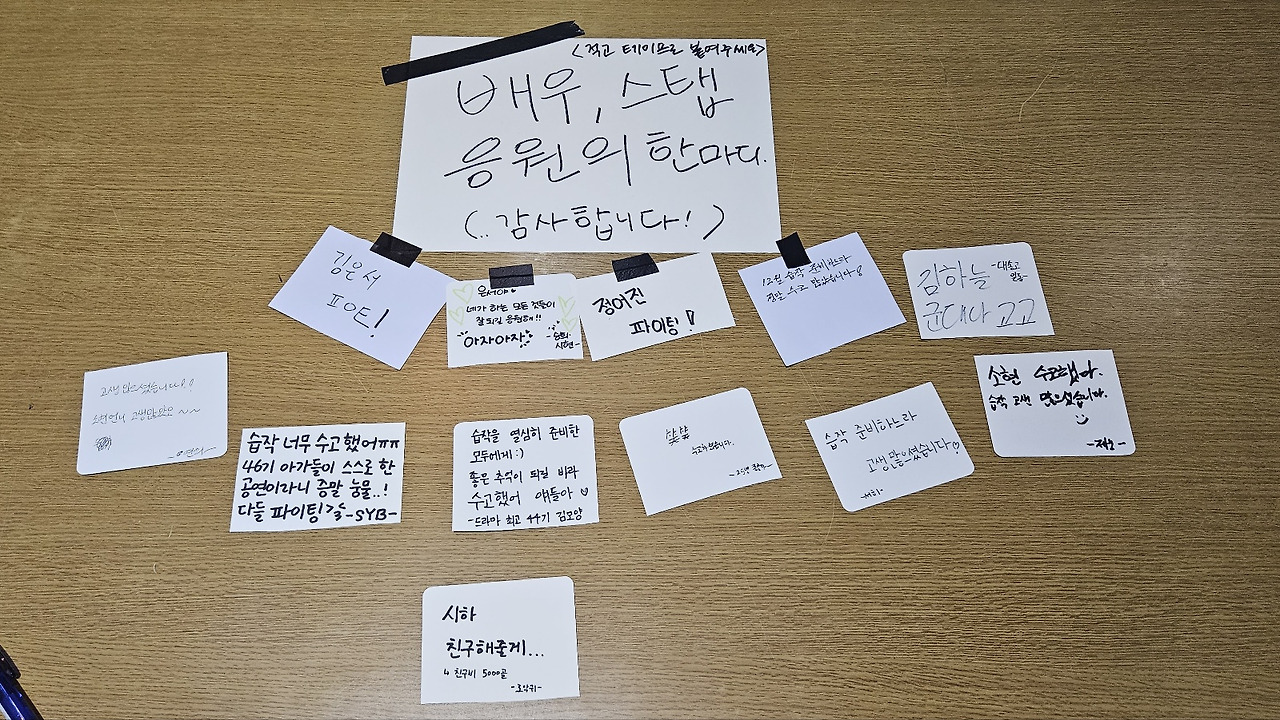 <적고 테이프로 붙여주세요>
배우, 스탭
응원의 한마디.
(.. 감사합니다! )
김은서
파이팅!
은서야
네가 하는 모든 것들이
잘 되길 응원해!!
아자아자
정어진
파이팅!
12월 습작 준비하느라
김하늘
군대나 고고
고생 많으셨습니다!!
소현언니 고생많았어 ~~
습작 너무 수고했어ㅠㅠ
46기 아가들이 스스로 한
공연이라니 증말 눙물..!
다들 파이팅길 -SYB-
습작을 열심히 준비한
모두에게 :)
좋은 추억이 되길 바라
수고했어 얘들아 ♡
-드라마 최고 44기 김모양
수고하셨습니다.
습작 준비하느라
고생 많으셨습니다♡
소현 수고했다.
습작 고생 많으셨습니다.
시하
친구해줄게...
ㄴ 친구비 5000골